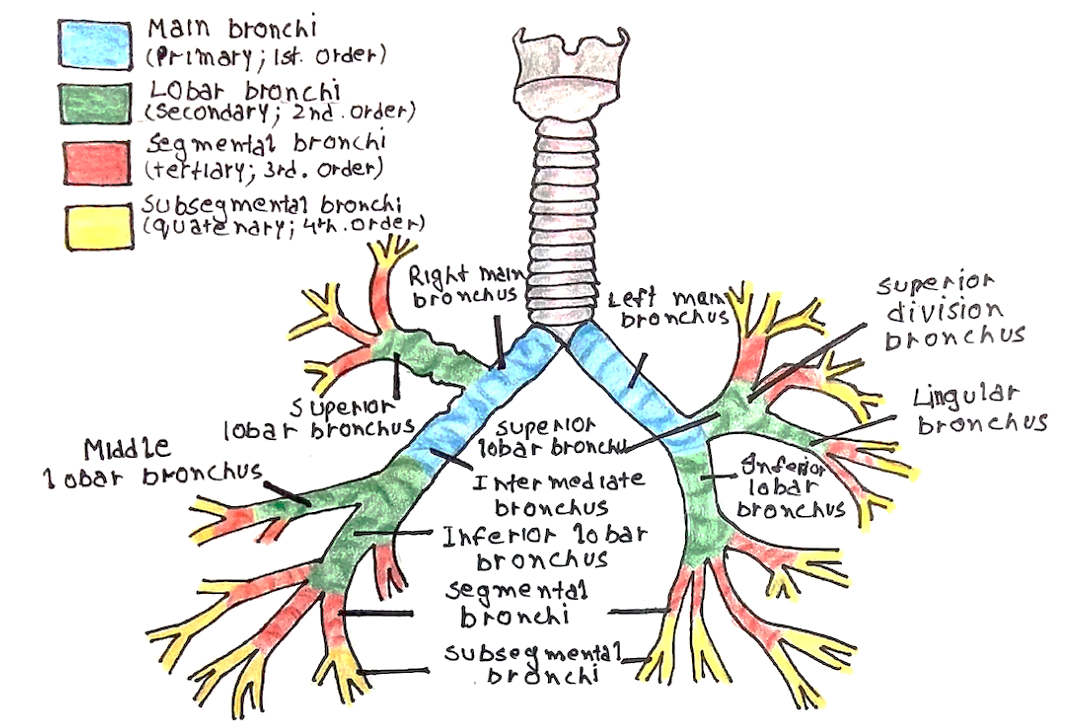 Main bronchi
(Primary; 1st. order)
Lobar bronchi
(secondary; 2nd. order)
Segmental bronchi
(tertiary; 3rd. order)
Subsegmental bronchi
(quatenary; 4th. order)
Right main
bronchus
Left main
bronchus
Superior
division
bronchus
Lingular
bronchus
Superior
lobar bronchus
Superior
lobar bronchu
Middle
lobar bronchus
Intermediate
bronchus
Inferior
lobar
bronchus
Inferior lobar
bronchus
Segmental
bronchi
Subsegmental
bronchi